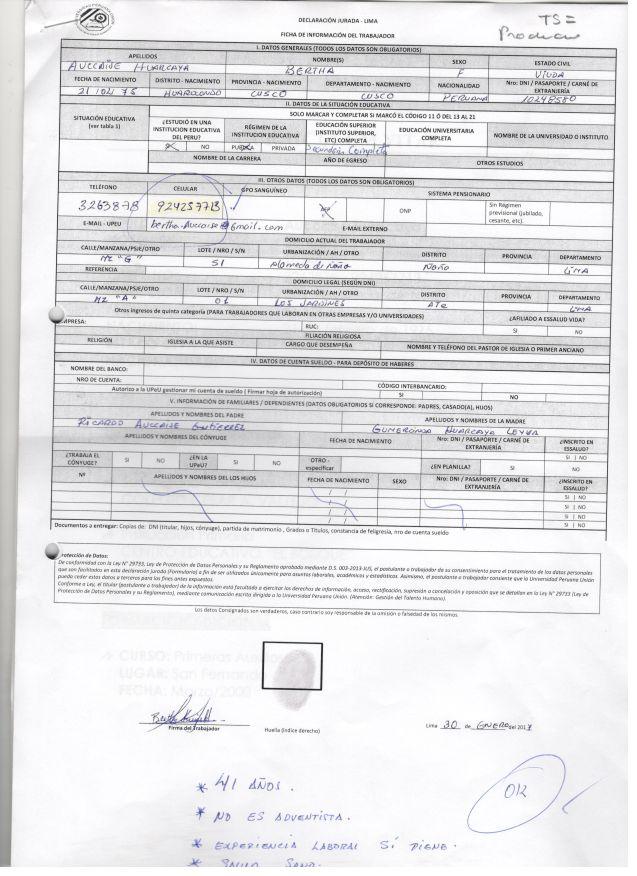 DECLARACIÓN JURADA - LIMA
TS=
FICHA DE INFORMACIÓN DEL TRABAJADOR
I. DATOS GENERALES (TODOS LOS DATOS SON OBLIGATORIOS)
APELLIDOS NOMBRE(S) SEXO ESTADO CIVIL
AUCCAISE HUARCAYA BERTHA F VIUDA
FECHA DE NACIMIENTO DISTRITO - NACIMIENTO PROVINCIA - NACIMIENTO DEPARTAMENTO - NACIMIENTO NACIONALIDAD Nro: DNI / PASAPORTE / CARNÉ DE EXTRANJERÍA
21 / 02 / 75 HUAROCONDO CUSCO CUSCO PERUANA 10248580
II. DATOS DE LA SITUACIÓN EDUCATIVA
SITUACIÓN EDUCATIVA (ver tabla 1)
SOLO MARCAR Y COMPLETAR SI MARCÓ EL CÓDIGO 11 Ó DEL 13 AL 21
¿ESTUDIÓ EN UNA INSTITUCION EDUCATIVA DEL PERU? RÉGIMEN DE LA INSTITUCION EDUCATIVA EDUCACIÓN SUPERIOR (INSTITUTO SUPERIOR, ETC) COMPLETA EDUCACIÓN UNIVERSITARIA COMPLETA NOMBRE DE LA UNIVERSIDAD O INSTITUTO
NO PUBLICA PRIVADA Secundaria Completa
NOMBRE DE LA CARRERA AÑO DE EGRESO OTROS ESTUDIOS
III. OTROS DATOS (TODOS LOS DATOS SON OBLIGATORIOS)
TELÉFONO CELULAR GPO SANGUÍNEO SISTEMA PENSIONARIO
3263878 924257713 AFP ONP Sin Régimen previsional (jubilado, cesante, etc).
E-MAIL - UPEU bertha.Auccaise@gmail.com E-MAIL EXTERNO
DOMICILIO ACTUAL DEL TRABAJADOR
CALLE/MANZANA/PSJE/OTRO LOTE / NRO / S/N URBANIZACIÓN / AH / OTRO DISTRITO PROVINCIA DEPARTAMENTO
MZ "G" 51 alameda de ñaña Ñaña LIMA
REFERENCIA DOMICILIO LEGAL (SEGÚN DNI)
CALLE/MANZANA/PSJE/OTRO LOTE / NRO / S/N URBANIZACIÓN / AH / OTRO DISTRITO PROVINCIA DEPARTAMENTO
MZ "A" 01 LOS JARDINES ATE LIMA
Otros ingresos de quinta categoría (PARA TRABAJADORES QUE LABORAN EN OTRAS EMPRESAS Y/O UNIVERSIDADES) ¿AFILIADO A ESSALUD VIDA?
EMPRESA: RUC: SI NO
FILIACIÓN RELIGIOSA
RELIGIÓN IGLESIA A LA QUE ASISTE CARGO QUE DESEMPEÑA NOMBRE Y TELÉFONO DEL PASTOR DE IGLESIA O PRIMER ANCIANO
IV. DATOS DE CUENTA SUELDO - PARA DEPÓSITO DE HABERES
NOMBRE DEL BANCO:
NRO DE CUENTA: CÓDIGO INTERBANCARIO:
Autorizo a la UPeU gestionar mi cuenta de sueldo ( Firmar hoja de autorización) SI NO
V. INFORMACIÓN DE FAMILIARES / DEPENDIENTES (DATOS OBLIGATORIOS SI CORRESPONDE: PADRES, CASADO(A), HIJOS)
APELLIDOS Y NOMBRES DEL PADRE APELLIDOS Y NOMBRES DE LA MADRE
RICARDO AUCCAISE GUTIERREZ GUMERCINDA HUARCAYA LEYVA
APELLIDOS Y NOMBRES DEL CÓNYUGE FECHA DE NACIMIENTO Nro: DNI / PASAPORTE / CARNÉ DE EXTRANJERÍA ¿INSCRITO EN ESSALUD?
SI | NO
¿TRABAJA EL CÓNYUGE? SI NO ¿EN LA UPeU? SI NO OTRO - especificar ¿EN PLANILLA? SI NO
Nº APELLIDOS Y NOMBRES DEL LOS HIJOS FECHA DE NACIMIENTO SEXO Nro: DNI / PASAPORTE / CARNÉ DE EXTRANJERÍA ¿INSCRITO EN ESSALUD?
/ / SI | NO
/ / SI | NO
/ / SI | NO
/ / SI | NO
Documentos a entregar: Copias de: DNI (titular, hijos, cónyuge), partida de matrimonio , Grados o Títulos, constancia de feligresía, nro de cuenta sueldo
Protección de Datos:
De conformidad con la Ley N° 29733, Ley de Protección de Datos Personales y su Reglamento aprobado mediante D.S. 003-2013-JUS, el postulante o trabajador da su consentimiento para el tratamiento de los datos personales
que son facilitados en esta declaración jurada (Formulario) a fin de ser utilizados únicamente para asuntos laborales, académicos y estadísticos. Asimismo, el postulante o trabajador consiente que la Universidad Peruana Unión
pueda ceder estos datos a terceros para los fines antes expuestos.
Conforme a Ley, el titular (postulante o trabajador) de la información está facultado a ejercitar los derechos de información, acceso, rectificación, supresión o cancelación y oposición que se detallan en la Ley N° 29733 (Ley de
Protección de Datos Personales y su Reglamento), mediante comunicación escrita dirigida a la Universidad Peruana Unión. (Atención: Gestión del Talento Humano).
Los datos Consignados son verdaderos, caso contrario soy responsable de la omisión o falsedad de los mismos.
CURSO: Primeros
LUGAR: San Fernando
FECHA: Marzo/2000
Firma del Trabajador
Huella (índice derecho)
Lima 30 de ENERO del 2017
* 41 AÑOS.
OK
* NO ES ADVENTISTA.
* EXPERIENCIA LABORAL SÍ TIENE.